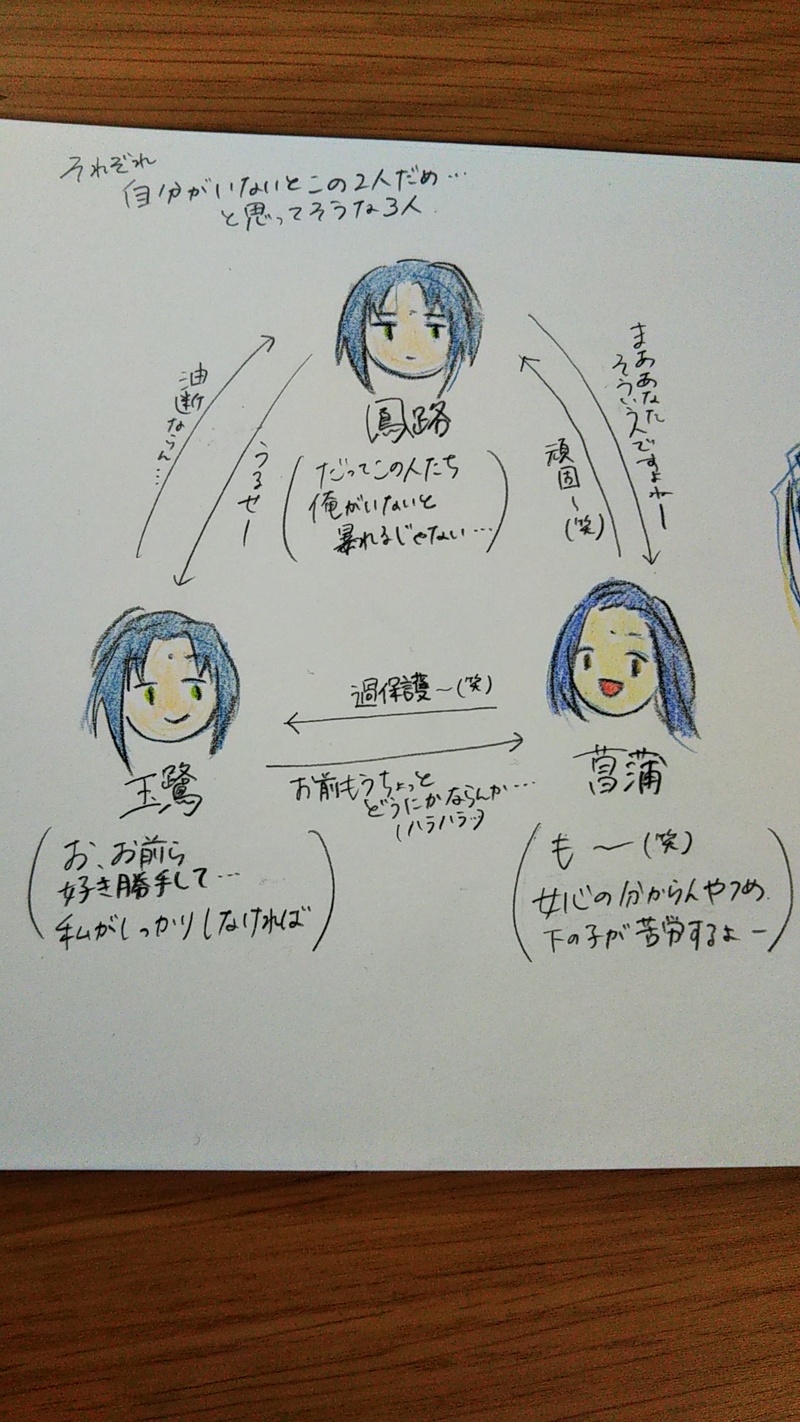 それぞれ
自分がいないとこの2人だめ…
と思ってそうな3人
油断ならん…
うるせー
まああなた
そういう人ですよねー
頑固〜(笑)
鳳路
(だってこの人たち
俺がいないと
暴れるじゃない…)
過保護〜(笑)
お前もうちょっと
どうにかならんか…
(ハラハラッ)
玉鷺
(お、お前ら
好き勝手して…
私がしっかりしなければ)
菖蒲
(も〜(笑)
女心の分からんやつめ
下の子が苦労するよー)